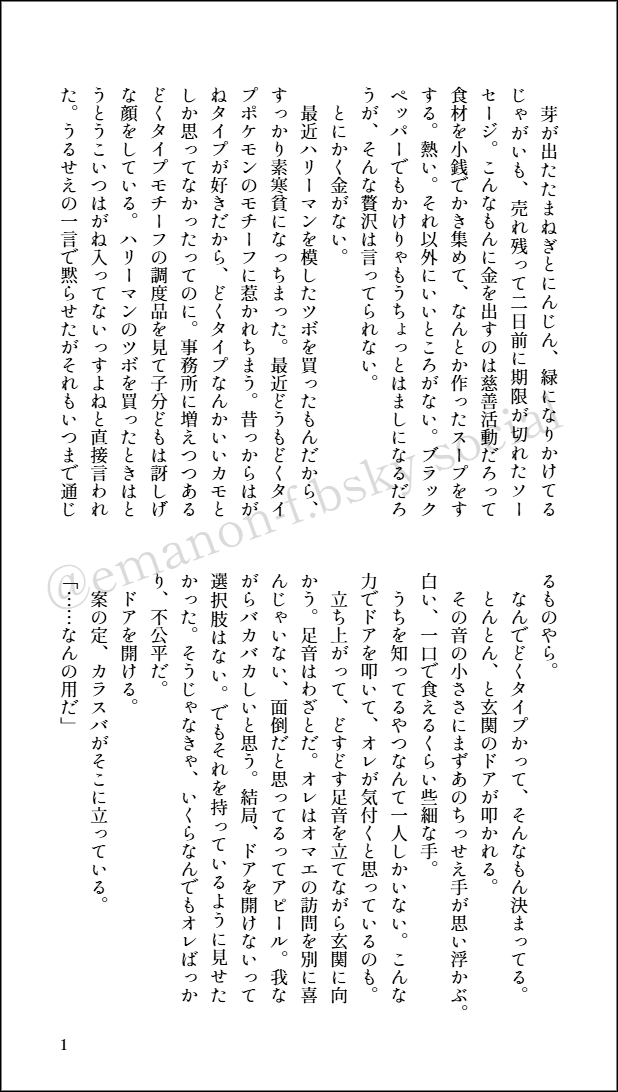 芽が出たたまねぎとにんじん、緑になりかけてる
じゃがいも、売れ残って二日前に期限が切れたソー
セージ。こんなもんに金を出すのは慈善活動だろって
食材を小銭でかき集めて、なんとか作ったスープをす
する。熱い。それ以外にいいところがない。ブラック
ペッパーでもかけりゃもうちょっとはましになるだろ
うが、そんな贅沢は言ってられない。
とにかく金がない。
最近ハリーマンを模したツボを買ったもんだから、
すっかり素寒貧になっちまった。最近どうもどくタイ
プポケモンのモチーフに惹かれちまう。昔っからはが
ねタイプが好きだから、どくタイプなんかいいカモと
しか思ってなかったってのに。事務所に増えつつある
どくタイプモチーフの調度品を見て子分どもは訝しげ
な顔をしている。ハリーマンのツボを買ったときはと
うとうこいつはがね入ってないっすよねと直接言われ
た。うるせえの一言で黙らせたがそれもいつまで通じ
るものやら。
なんでどくタイプかって、そんなもん決まってる。
とんとん、と玄関のドアが叩かれる。
その音の小ささにまずあのちっせえ手が思い浮かぶ。
白い、一口で食えるくらい些細な手。
うちを知ってるやつなんて一人しかいない。こんな
力でドアを叩いて、オレが気付くと思っているのも。
立ち上がって、どすどす足音を立てながら玄関に向
かう。足音はわざとだ。オレはオマエの訪問を別に喜
んじゃいない、面倒だと思ってるってアピール。我な
がらバカバカしいと思う。結局、ドアを開けないって
選択肢はない。でもそれを持っているように見せた
かった。そうじゃなきゃ、いくらなんでもオレばっか
り、不公平だ。
ドアを開ける。
案の定、カラスバがそこに立っている。
「……なんの用だ」
1
@emanon-f.bsky.social